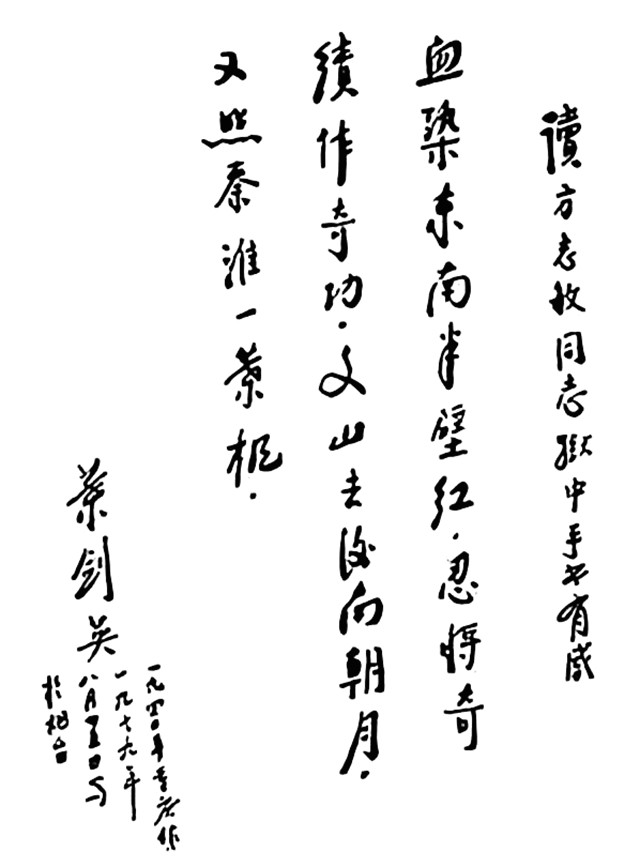 讀方志敏同志獄中手书有感
血染东南半壁红。忍将奇
績作奇功。文山去後南朝月。
又照秦淮一葉枫。
葉剑英
一九四〇年重庆作
一九七九年
八月 日写
於烟台